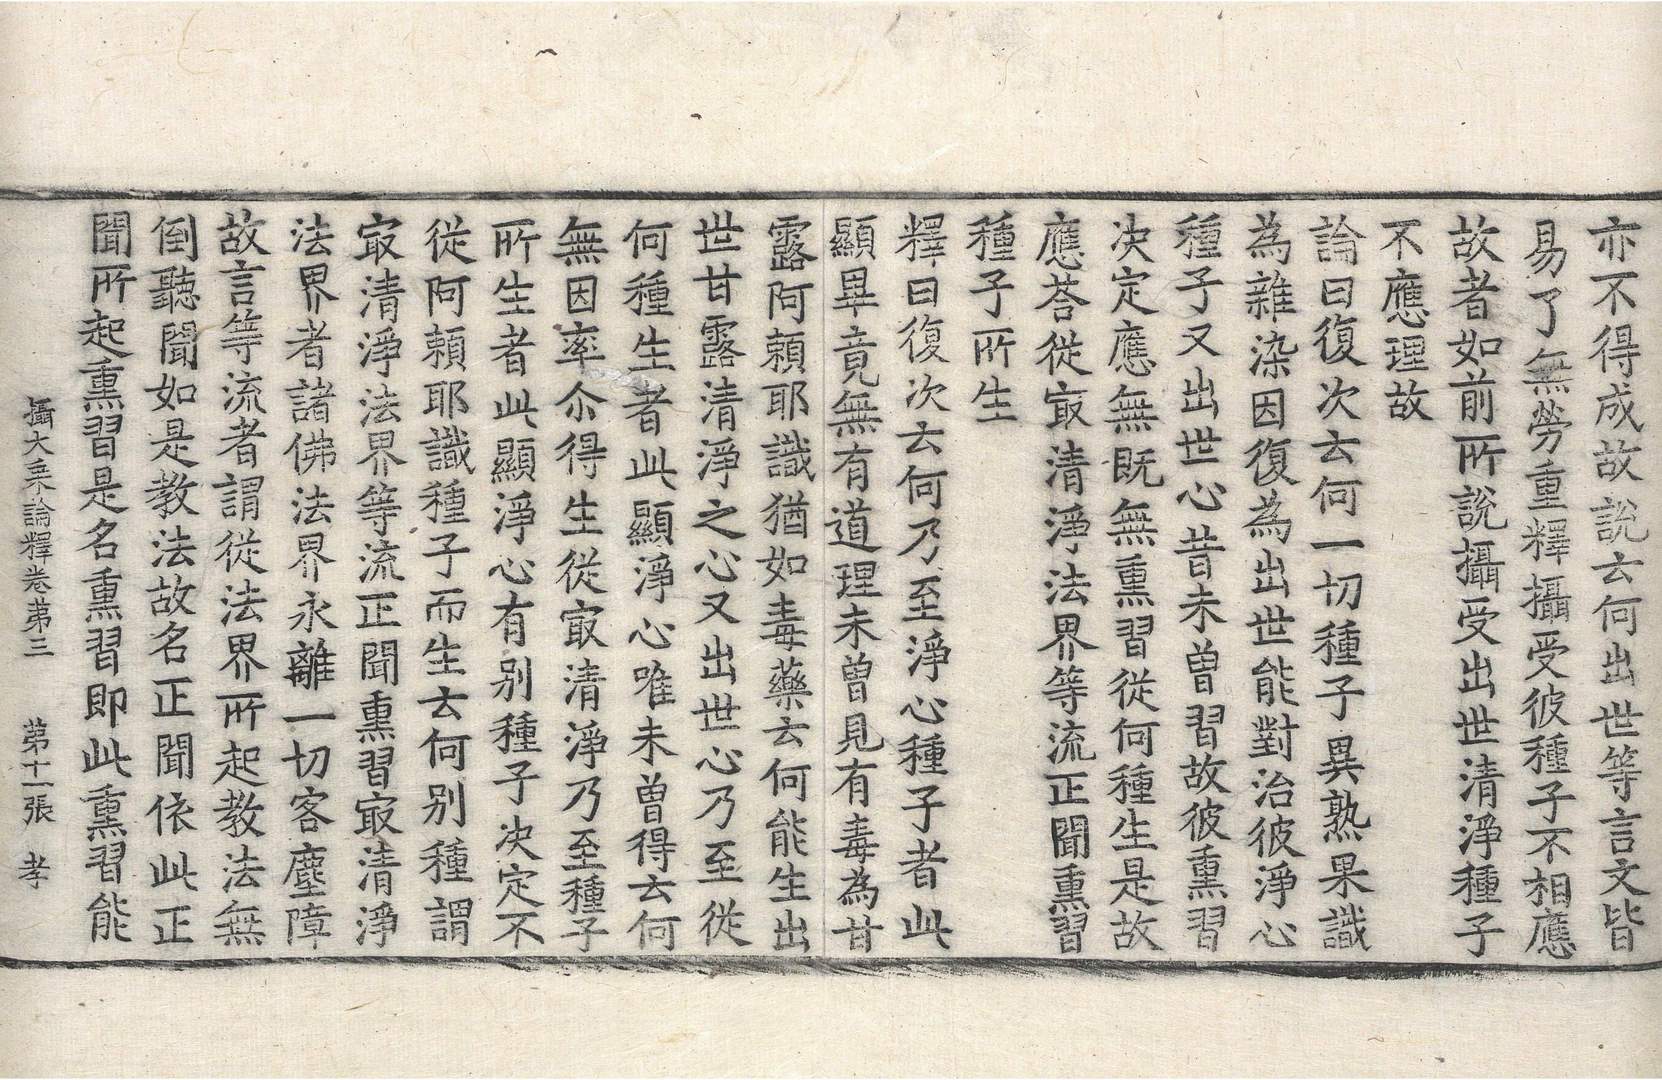 亦不得成故說云何出世等言文皆
易了無勞重釋攝受彼種子不相應
故者如前所說攝受出世清淨種子
不應理故
論曰復次云何一切種子異熟果識
為雜染因復為出世能對治彼淨心
種子又出世心昔未曾習故彼熏習
决定應無旣無熏習從何種生是故
應荅從㝡清淨法界等流正聞熏習
種子所生
釋曰復次云何乃至淨心種子者此
顯畢竟無有道理未曾見有毒為甘
露阿頼耶識猶如毒藥云何能生出
世甘露清淨之心又出世心乃至從
何種生者此顯淨心唯未曾得云何
無因率尒得生從㝡清淨乃至種子
所生者此顯淨心有别種子决定不
從阿頼耶識種子而生云何别種謂
㝡清淨法界等流正聞熏習㝡清淨
法界者諸佛法界永離一切客塵障
故言等流者謂從法界所起教法無
倒聽聞如是教法故名正聞依此正
聞所起熏習是名熏習即此熏習能
攝大乗論釋卷苐三　苐十一張　孝